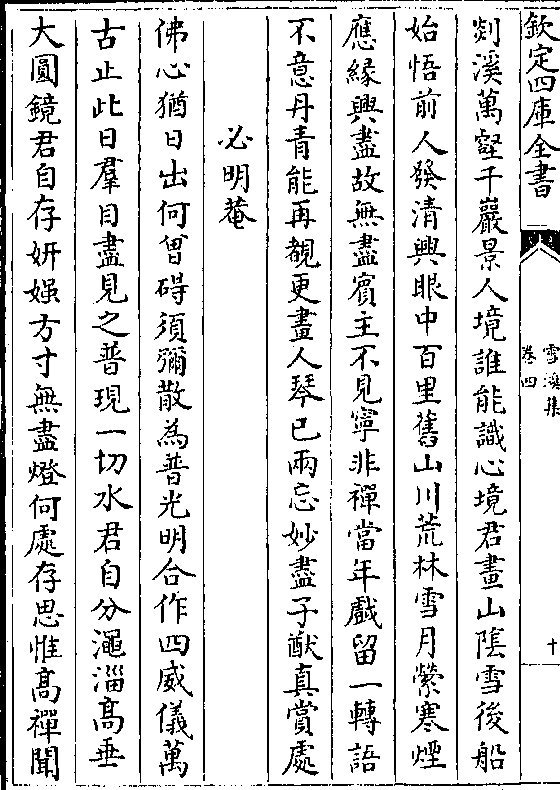 欽定四庫全書
雪溪集
卷四
十
剡溪萬壑千巖景人境誰能識心境君畫山陰雪後船
始悟前人發清興眼中百里舊山川荒林雪月縈寒煙
應緣興盡故無盡賓主不見寧非禪當年戲留一轉語
不意丹青能再覩更畫人琴已兩忘妙盡子猷真賞處
必明菴
佛心猶日出何曾碍須彌散為普光明合作四威儀萬
古止此日羣目盡見之普現一切水君自分澠淄髙垂
大圓鏡君自存妍媸方寸無盡燈何處存思惟髙禪聞